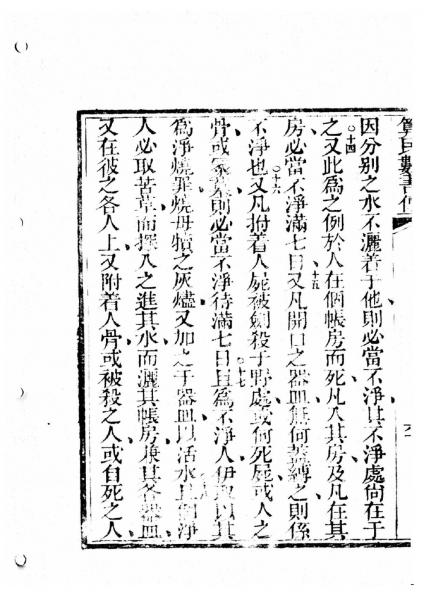 算民數書傳
因分别之水不灑着于他則必當不淨其不淨處尚在于
之○十四又此爲之例於人在個帳房而死凡入其房及凡在其
房必當不淨滿七日○十五又凡開口之器皿無何蓋縛之則係
不淨也○十六又凡拊着人屍被劍殺于野處或何死屍或人之
骨或冢墓則必當不淨待滿七日○十七且爲不淨人伊取以其
爲淨燒罪燒母犢之灰燼又加之于器皿以活水且個淨
人必取苦草而探入之進其水而灑其帳房兼其各器皿
又在彼之各人上又附着人骨或被殺之人或自死之人